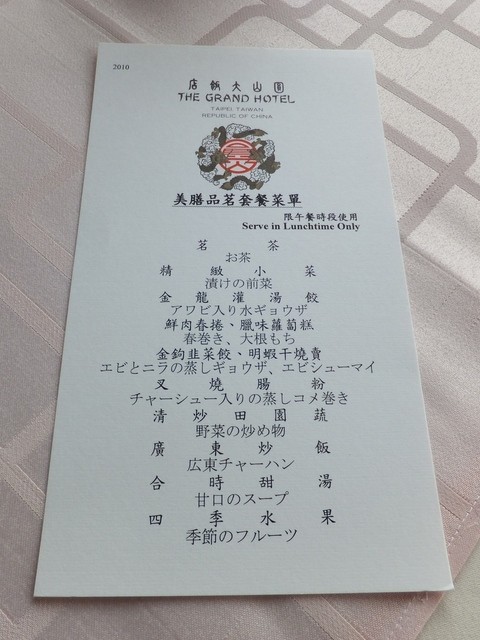 2010
店飯大山圓
THE GRAND HOTEL
TAIPEI TAIWAN
REPUBLIC OF CHINA
美膳品茗套餐菜單
限午餐時段使用
Serve in Lunchtime Only
茗茶
お茶
精緻小菜
漬けの前菜
金龍灌湯餃
アワビ入り水ギョウザ
鮮肉春捲、臘味蘿蔔糕
春巻き、大根もち
金鉤韭菜餃、明蝦干燒賣
エビとニラの蒸しギョウザ、エビシューマイ
叉燒腸粉
チャーシュー入りの蒸しコメ巻き
清炒田園蔬
野菜の炒め物
廣東炒飯
広東チャーハン
合時甜湯
甘口のスープ
四季水果
季節のフルーツ